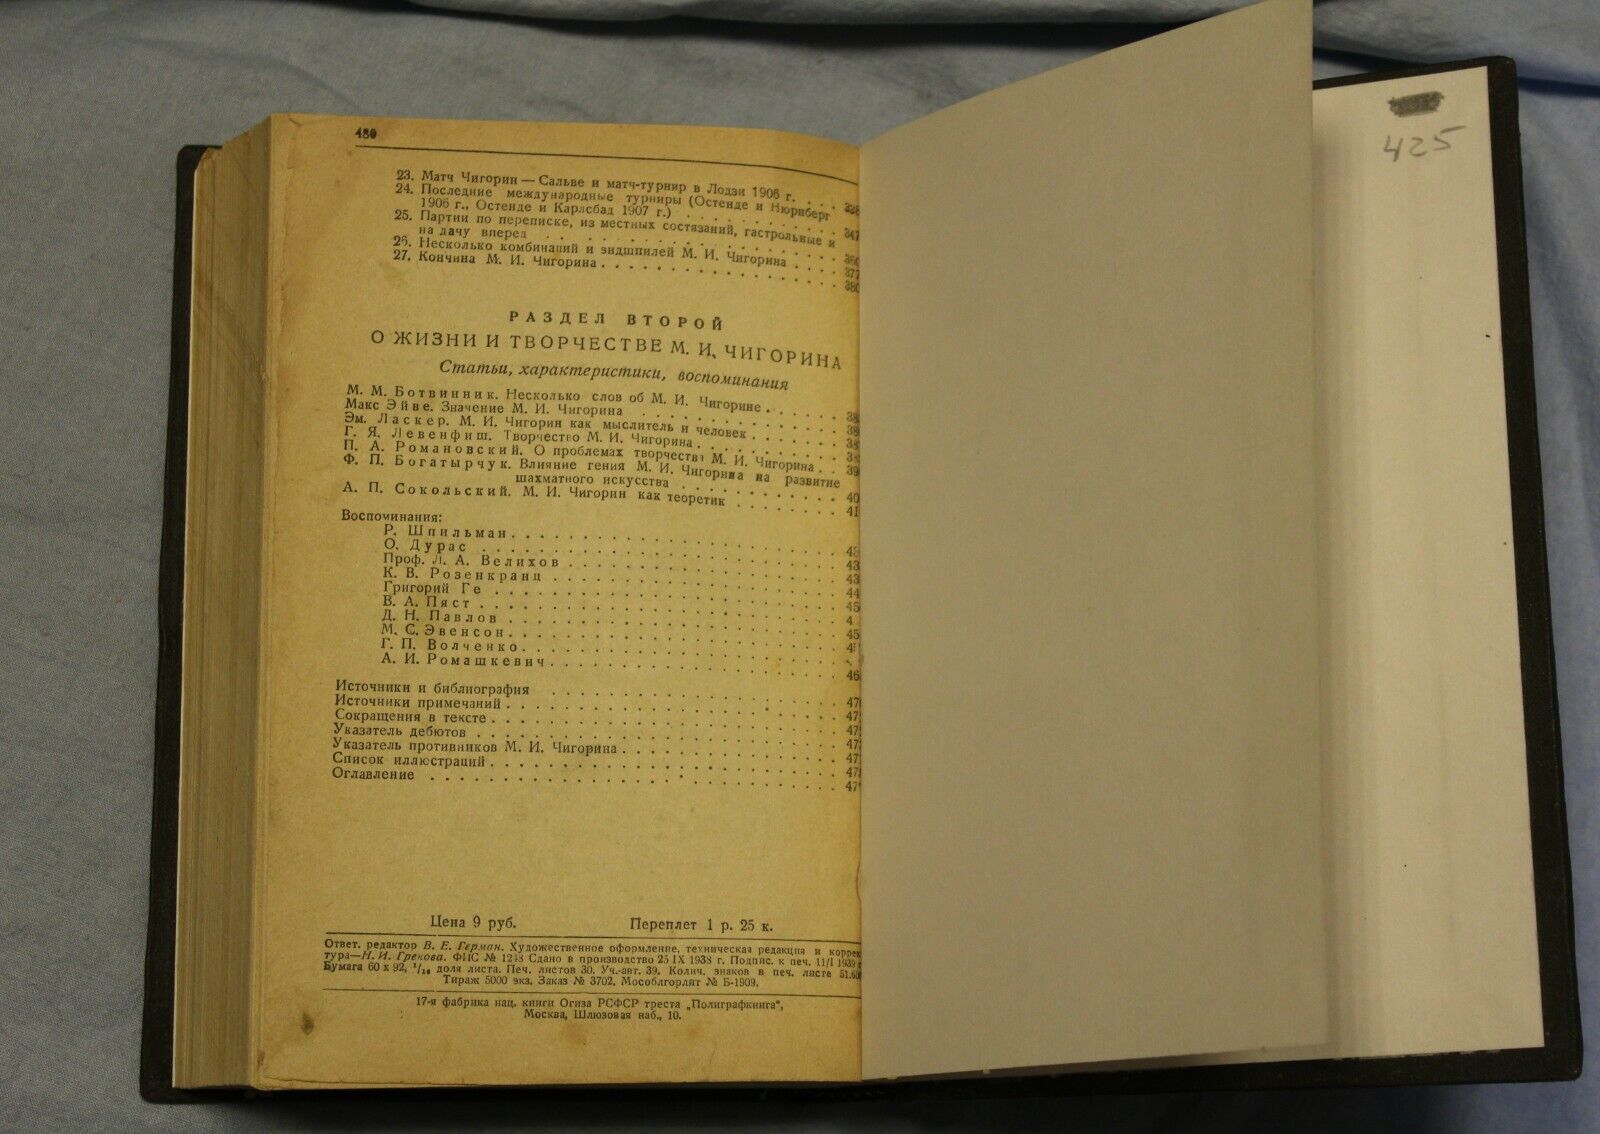 480
23. Матч Чигорин — Сальве и матч-турнир в Лодзи 1906 г. . . . 338
24. Последние международные турниры (Остенде и Нюрнберг
1906 г., Остенде и Карлсбад 1907 г.) . . . . . . . . . . 347
25. Партии по переписке, из местных состязаний, гастрольные и
на дачу вперед . . . . . . . . . . . . . . . . . .
26. Несколько комбинаций и эндшпилей М. И. Чигорина . . . . 377
27. Кончина М. И. Чигорина . . . . . . . . . . . . . . . . . 380
РАЗДЕЛ ВТОРОЙ
О ЖИЗНИ И ТВОРЧЕСТВЕ М. И. ЧИГОРИНА
Статьи, характеристики, воспоминания
М. М. Ботвинник. Несколько слов об М. И. Чигорине . . . . . . 38
Макс Эйве. Значение М. И. Чигорина . . . . . . . . . . . . 38
Эм. Ласкер. М. И. Чигорин как мыслитель и человек . . . . . . . 38
Г. Я. Левенфиш. Творчество М. И. Чигорина . . . . . . . . . . 38
П. А. Романовский. О проблемах творчества М. И. Чигорина . . 39
Ф. П. Богатырчук. Влияние гения М. И. Чигорина на развитие
шахматного искусства . . . . . . . . . . 40
А. П. Сокольский. М. И. Чигорин как теоретик . . . . . . . . 41
Воспоминания:
Р. Шпильман . . . . . . . . . . . . . . . . . . . . 43
О. Дурас . . . . . . . . . . . . . . . . . . . . . . 43
Проф. Л. А. Велихов . . . . . . . . . . . . . . . . . 43
К. В. Розенкранц . . . . . . . . . . . . . . . . . . 44
Григорий Ге . . . . . . . . . . . . . . . . . . . . . 45
В. А. Пяст . . . . . . . . . . . . . . . . . . . . . . 4
Д. Н. Павлов . . . . . . . . . . . . . . . . . . . . 45
М. С. Эвенсон . . . . . . . . . . . . . . . . . . . . 4
Г. П. Волченко . . . . . . . . . . . . . . . . . . .
А. И. Ромашкевич . . . . . . . . . . . . . . . . . . 46
Источники и библиография . . . . . . . . . . . . . . . . . 47
Источники примечаний . . . . . . . . . . . . . . . . . . . 47
Сокращения в тексте . . . . . . . . . . . . . . . . . . . . 47
Указатель дебютов . . . . . . . . . . . . . . . . . . . . . 47
Указатель противников М. И. Чигорина . . . . . . . . . . . . 47
Список иллюстраций . . . . . . . . . . . . . . . . . . . . 47
Оглавление . . . . . . . . . . . . . . . . . . . . . . . . 47
Цена 9 руб. Переплет 1 р. 25 к.
Ответ. редактор В. Е. Герман. Художественное оформление, техническая редакция и коррек
тура—Н. И. Грекова. ФИС № 1248 Сдано в производство 25 IX 1938 г. Подпис. к печ. 11/I 1939 г
Бумага 60 х 92, 1/16 доля листа. Печ. листов 30. Уч.-авт. 39. Колич. знаков в печ. листе 51.60
Тираж 5000 экз. Заказ № 3702. Мособлгорлит № Б-1909.
17-я фабрика нац. книги Огиза РСФСР треста „Полиграфкнига",
Москва, Шлюзовая наб., 10.
425